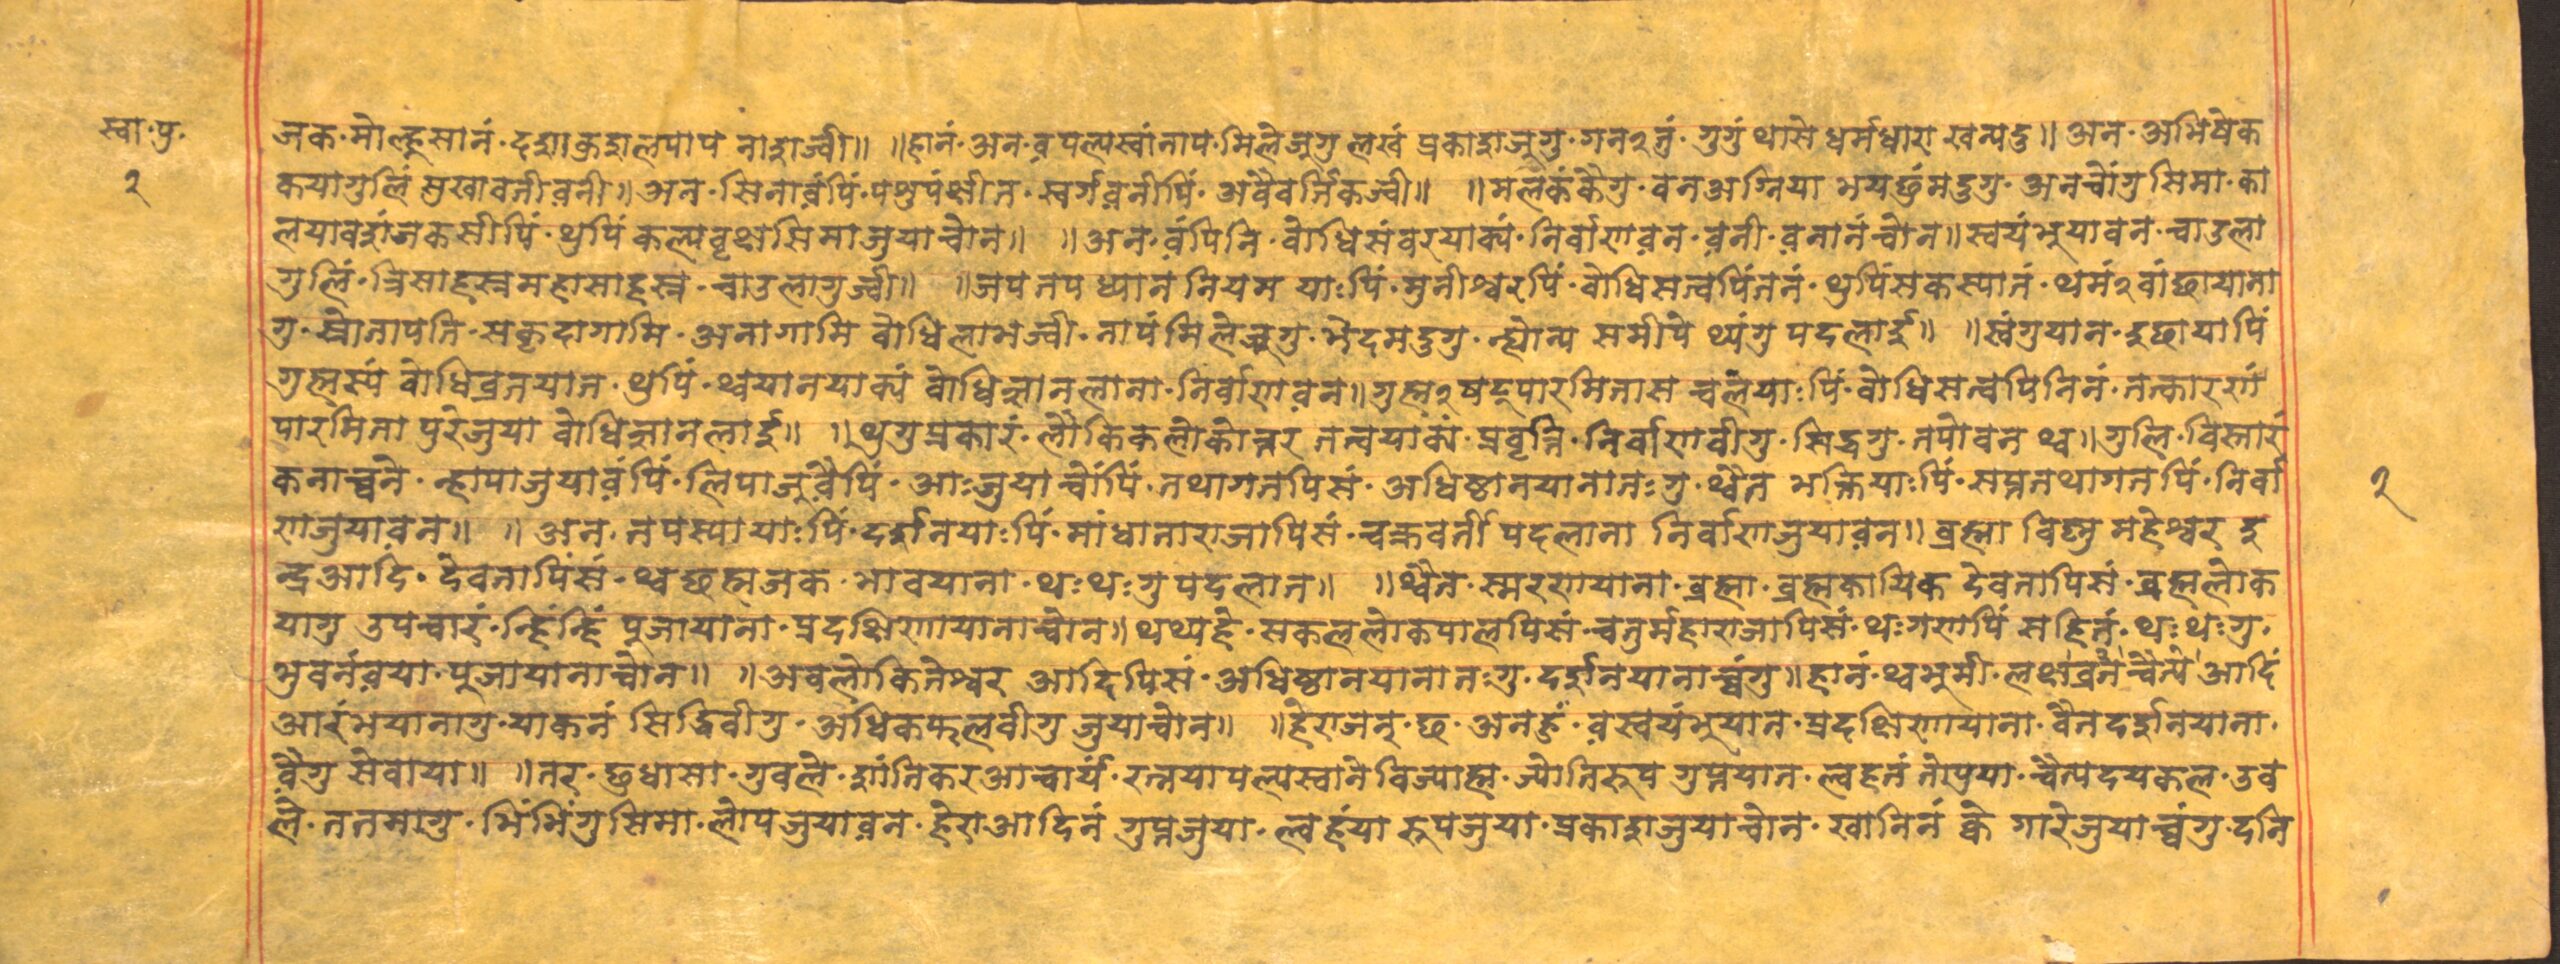 स्वा॰पु॰
२
जक॰मोल्हूसानं॰दशाक्रशलपाप नाशज्वी॥ ॥हानं॰अन॰व़पल्यस्वांनाप॰मिलेजूगु लखं प्रकाशजूगु॰गन२नुं॰गुगुं थासे धर्मधारा खन्यदु॥ अन॰अभिषेक
कयागुलिं सुखावती व़नी॥ अन॰सिनाव़ंपिं॰पशुपंक्षीत॰स्वर्गव़नीपिं॰अवैवर्त्तिकज्वी॥ ॥मलेकंकैगु॰वनअग्निया भयछुंमदुगु॰अनचोंगु सिमा॰का
लयावशंजकसीपिं॰थुपिं कल्पवृक्षसिमाजुयाचोन॥ ॥अन॰व़ंपिनि॰बोधिसंवरयाक्यं॰निर्वाणव़न॰व़नी॰व़नानंच्वोन॥स्वयंभुयावन॰चाउला
गुलिं॰त्रिसाहस्त्रमहासाहस्त्र॰चाउलागुज्वी॥ ॥जपतपध्याननियम याःपिं॰मुनीश्वरपिं॰बोधिसत्वपिंतनं॰थुपिंसकस्यानं॰थमं२वांछायाना
गु॰स्रोतापति॰सकृदागामि॰अनागामि बोधिलाभज्वी॰नापंमिलेजूगु॰भेदमदुगु॰न्ह्योन्य समीपे थ्यंगु पदलाई॥ ॥स्वंगुयान॰इछायापिं
गुह्मस्यं बोधिव्रतयात॰थुपिं॰थ्वयानयाक्यं बोधिज्ञानलाना॰निर्वाणव़न॥गुह्म२षट्पारमितास चलेयाःपिं॰बोधिसत्वपिनिनं॰तत्कारणं
पारमिता पुरेजुया बोधिज्ञानलाई॥ ॥थुगुप्रकारं॰लौकिकलोकोत्तर तत्वयाक्यं॰प्रवृत्ति॰निर्वाणवीगु॰सिद्धगु॰तपोवन थ्व॥गुलि॰विस्तारं
कनाच्वने॰न्हापाजुयाव़ंपिं॰लिपाजूवैपिं॰आःजुयाच्वोंपिं॰तथागतपिसं॰अधिष्ठानयानातःगु॰थ्वैत भक्तियाःपिं॰सप्ततथागतपिं॰निर्वा
णजुयाव़न॥ ॥अन॰तपस्यायाःपिं॰दर्शनयाःपिं॰मांधाताराजापिसं॰चक्रवर्ती पदलाना निर्वाणजुयाव़न॥ब्रह्मा विष्णु महेश्वर इ
न्द्रआदि॰देवतापिंसं॰थ्वछह्मजक॰भावयाना॰थःथःगु पदलात॥ ॥थ्वैत॰स्मरणयाना॰ब्रह्मा॰ब्रह्मकायिक देवतापिसं॰ब्रह्मलोक
यागु उपचारं॰न्हिंन्हिं पूजायाना॰प्रदक्षिणायानाच्वोन॥थथ्यहे॰सकललोकपालपिसं॰चतुर्महाराजापिसं॰थःगणपिं सहितं॰थःथःगु॰
भुवनंव़या॰पूजायानाच्वोन॥ ॥अवलोकितेश्वर आदिपिसं॰अधिष्ठानयानातःगु॰दर्शनयानाच्वंगु॥हानं॰थ्वभुमी॰लक्षव्रत चैत्ये आदिं
आरंभयानागु॰याकनं सिद्धिवीगु॰अधिकफलवीगु जुयाचोन॥ ॥हेराजन्॰छ॰अनहुं॰व़स्वयंभूयात॰प्रदक्षिणायाना॰वैतदर्शनयाना॰
व़ैगु सेवाया॥ ॥तर॰छुधासा॰गुवले॰शांतिकरआचार्यं॰रत्नयापल्यस्वाने विज्याह्म॰ज्योतिरुप गुप्तयात॰ल्वहतं तोपुया॰चैत्यदयकल॰उव
ले॰ततमागु॰भिंभिंगुसिमा॰लोपजुयाव़न॰हेराआदिनं गुप्तजुया॰ल्वहंया रूपजुया॰प्रकाशजुयाचोन॰खानिनं क्वे गारेजुयाच्वंगु॰दनि
२